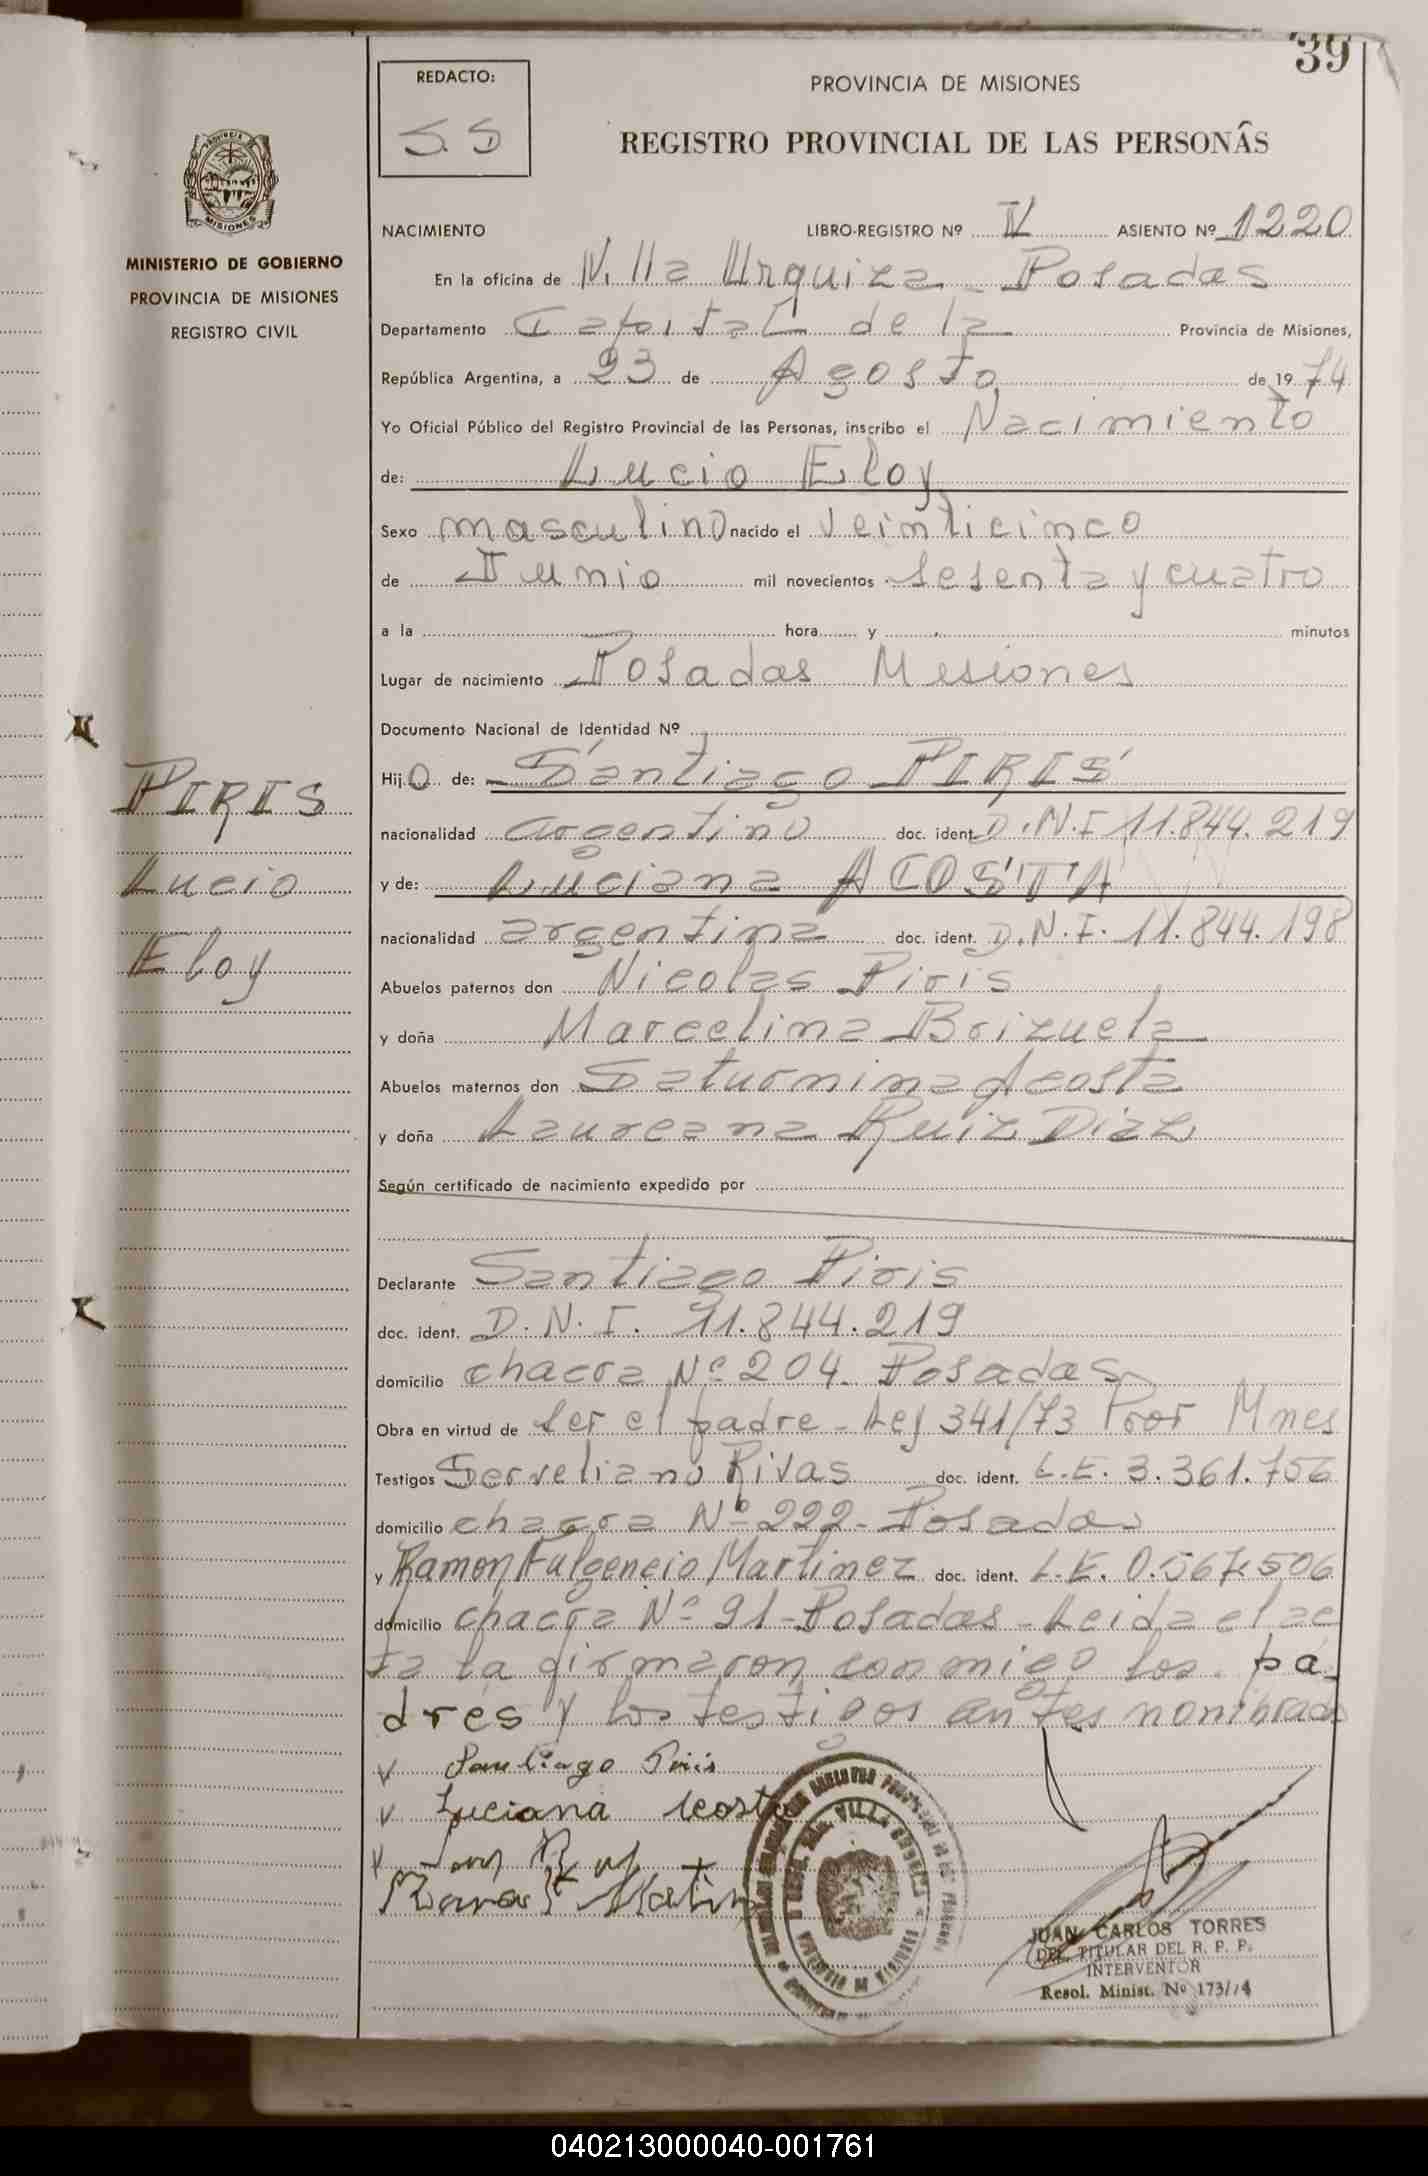 39
REDACTO:
S.S
PROVINCIA DE MISIONES
REGISTRO PROVINCIAL DE LAS PERSONAS
PROVINCIA DE
MISIONES
MINISTERIO DE GOBIERNO
PROVINCIA DE MISIONES
REGISTRO CIVIL
PIRIS
Lucio
Eloy
NACIMIENTO LIBRO-REGISTRO Nº IV ASIENTO Nº 1220
En la oficina de Villa Urquiza - Posadas
Departamento Capital de la Provincia de Misiones,
República Argentina, a 23 de Agosto de 1974
Yo Oficial Público del Registro Provincial de las Personas, inscribo el Nacimiento
de: Lucio Eloy
Sexo masculino nacido el Veinticinco
de Junio mil novecientos sesenta y cuatro
a la hora y minutos
Lugar de nacimiento Posadas Misiones
Documento Nacional de Identidad Nº
Hijo de: Santiago PIRIS
nacionalidad argentino doc. ident. D.N.I 11.844.219
y de: Luciana ACOSTA
nacionalidad argentina doc. ident. D.N.I. 11.844.198
Abuelos paternos don Nicolas Piris
y doña Marcelina Brizuela
Abuelos maternos don Saturnina Acosta
y doña Laureana Ruiz Diaz
Según certificado de nacimiento expedido por
Declarante Santiago Piris
doc. ident. D.N.I. 11.844.219
domicilio chacra Nº 204 - Posadas
Obra en virtud de ser el padre - Ley 341/73 Pror Mnes
Testigos Serveliano Rivas doc. ident. L.E. 3.361.756
domicilio chacra Nº 222 - Posadas
y Ramon Fulgencio Martinez doc. ident. L.E. 0.567.506
domicilio chacra Nº 91 - Posadas - Leida el ac
ta la firmaron conmigo los pa-
dres y los testigos antes nombrados
Santiago Piris
Luciana Acosta
JUAN CARLOS TORRES
DEL. TITULAR DEL R. P. P.
INTERVENTOR
Resol. Minist. Nº 173/74
040213000040-001761